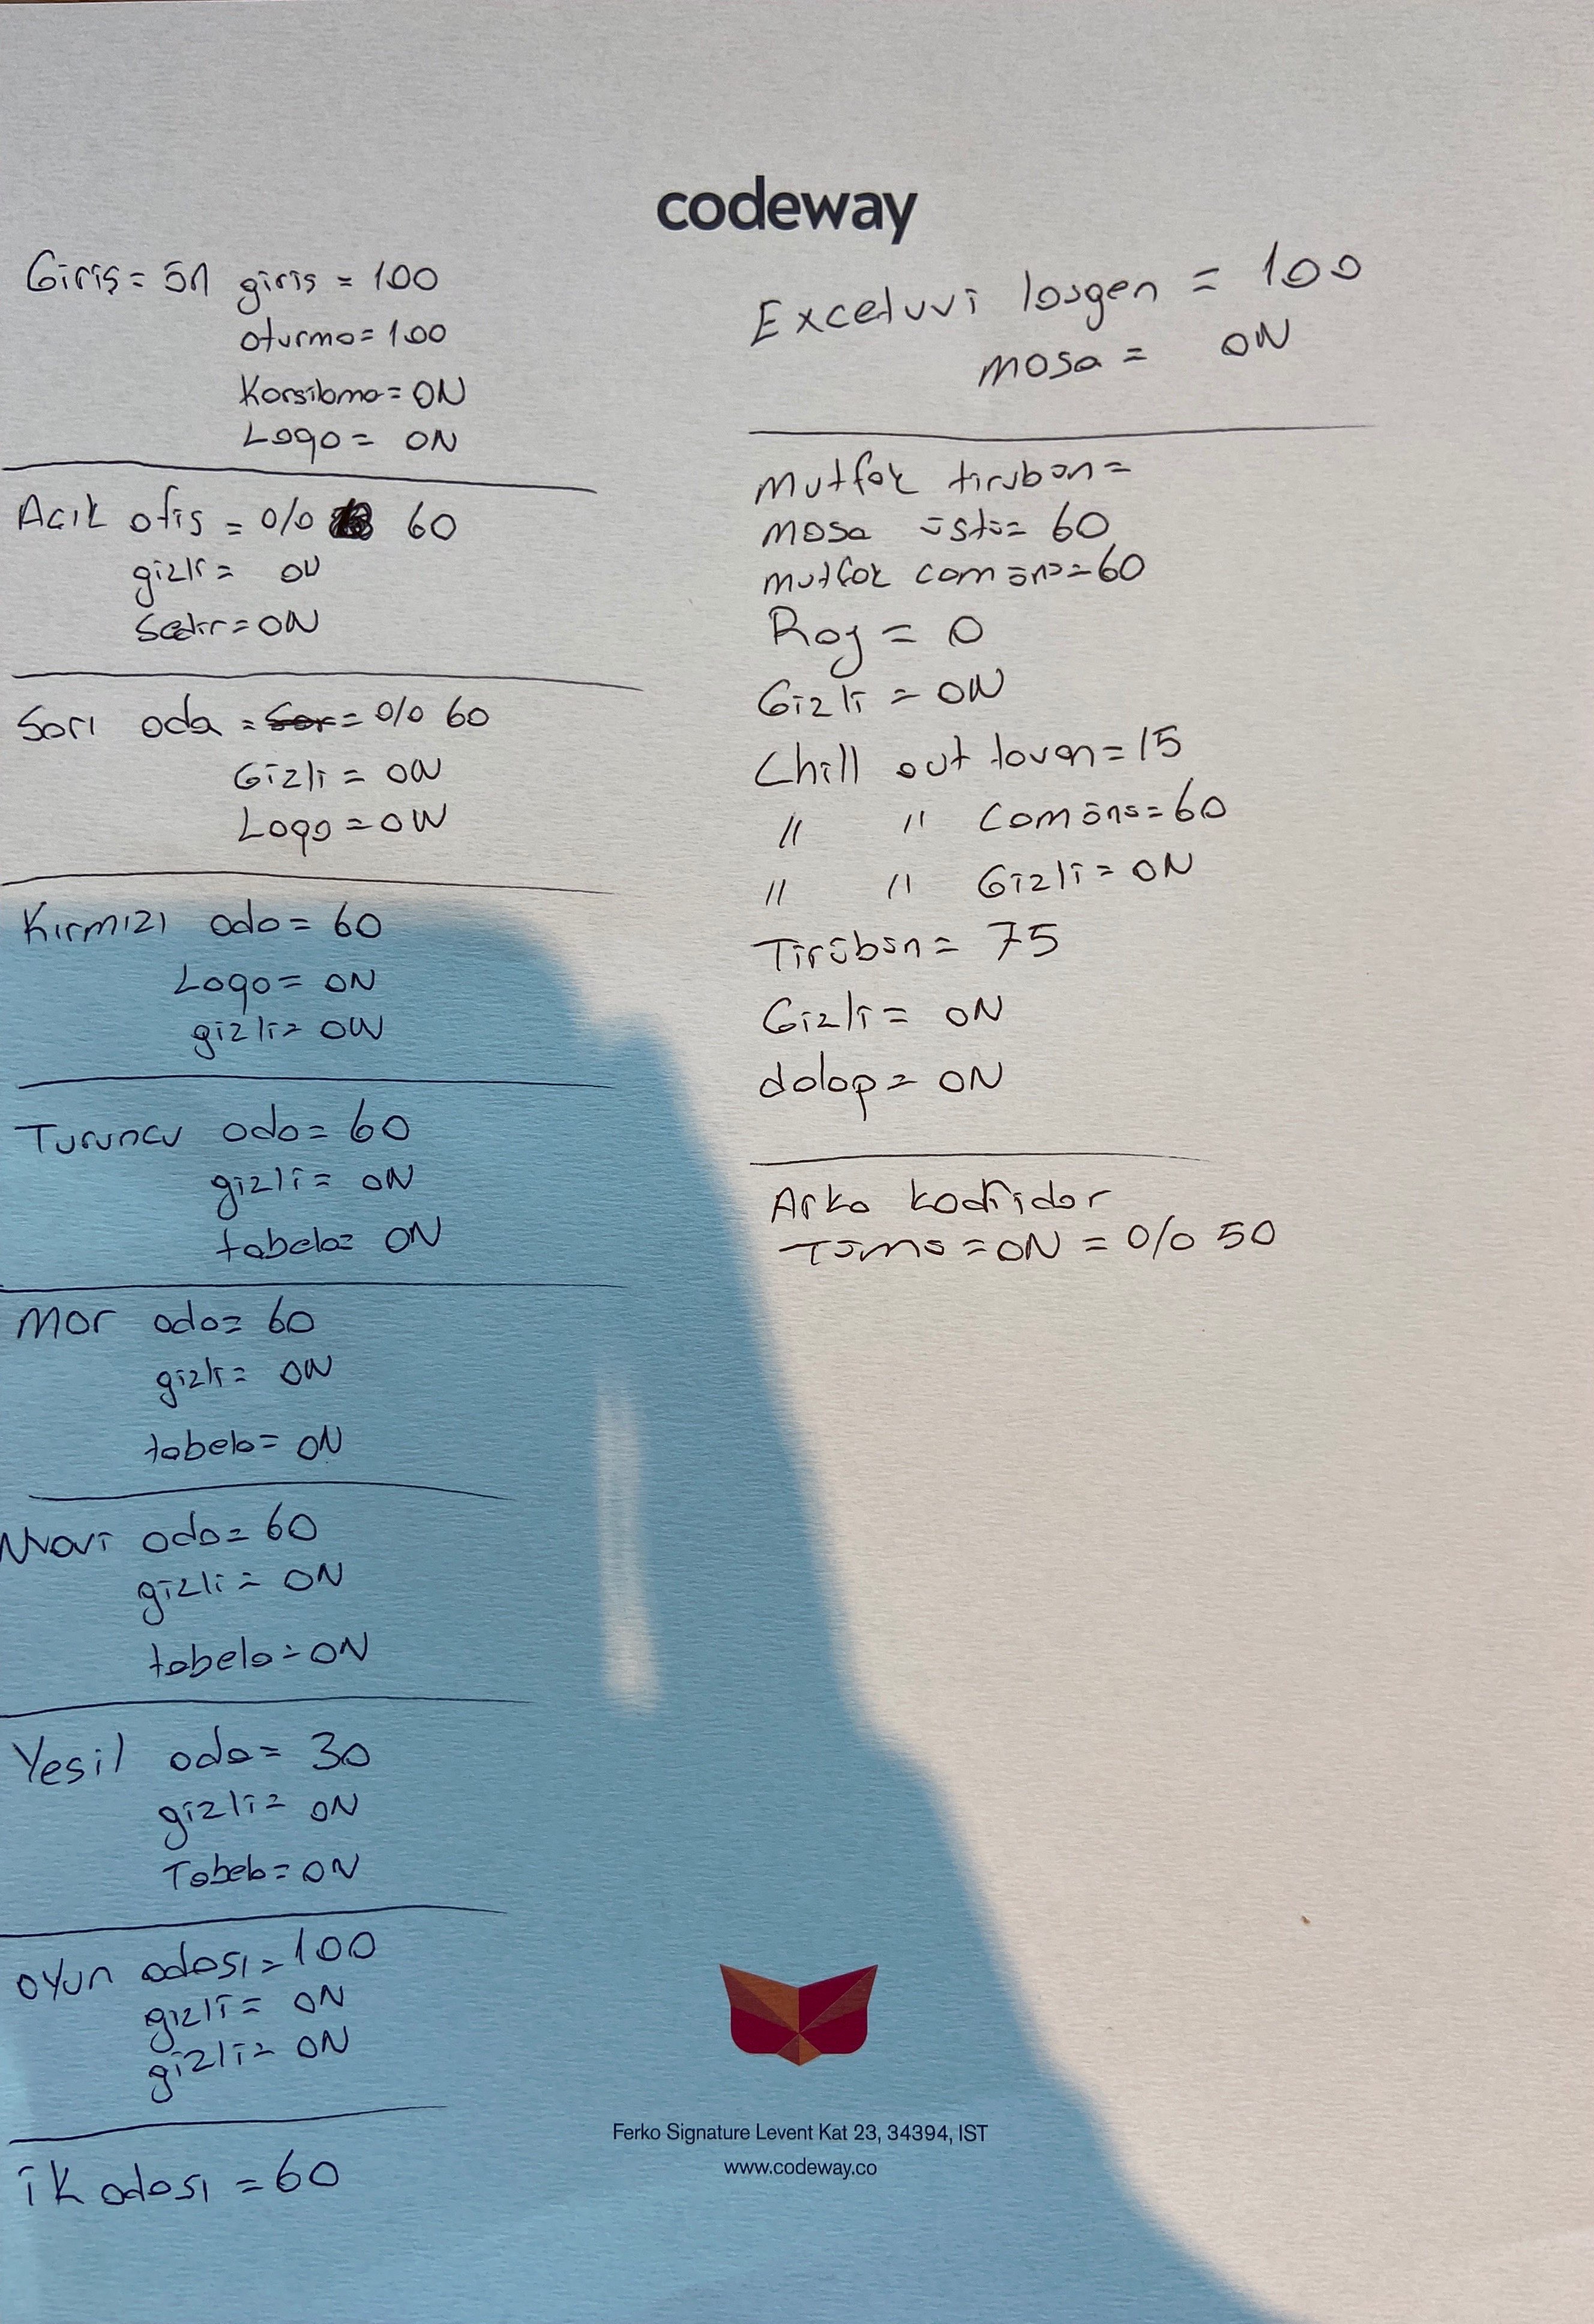 codeway
Giriş = ön giriş = 100
oturma = 100
Karsilama = ON
Logo = ON
Acık ofis = 0/0 60
gizli = ON
Sedir = ON
Sarı oda = Sar = 0/0 60
Gizli = ON
Logo = ON
Kırmızı oda = 60
Logo = ON
gizli = ON
Turuncu oda = 60
gizli = ON
tabela = ON
Mor oda = 60
gizli = ON
tabela = ON
Mavi oda = 60
gizli = ON
tabela = ON
Yesil oda = 30
gizli = ON
Tabela = ON
oyun odası = 100
gizli = ON
gizli = ON
ik odası = 60
Exceluvi losgen = 100
masa = ON
Mutfak tirubün =
masa üstü = 60
mutfak cam önü = 60
Ray = 0
Gizli = ON
Chill out tavan = 15
" " Cam önü = 60
" " Gizli = ON
Tirübün = 75
Gizli = ON
dolap = ON
Arka koridor
Tümü = ON = 0/0 50
Ferko Signature Levent Kat 23, 34394, IST
www.codeway.co